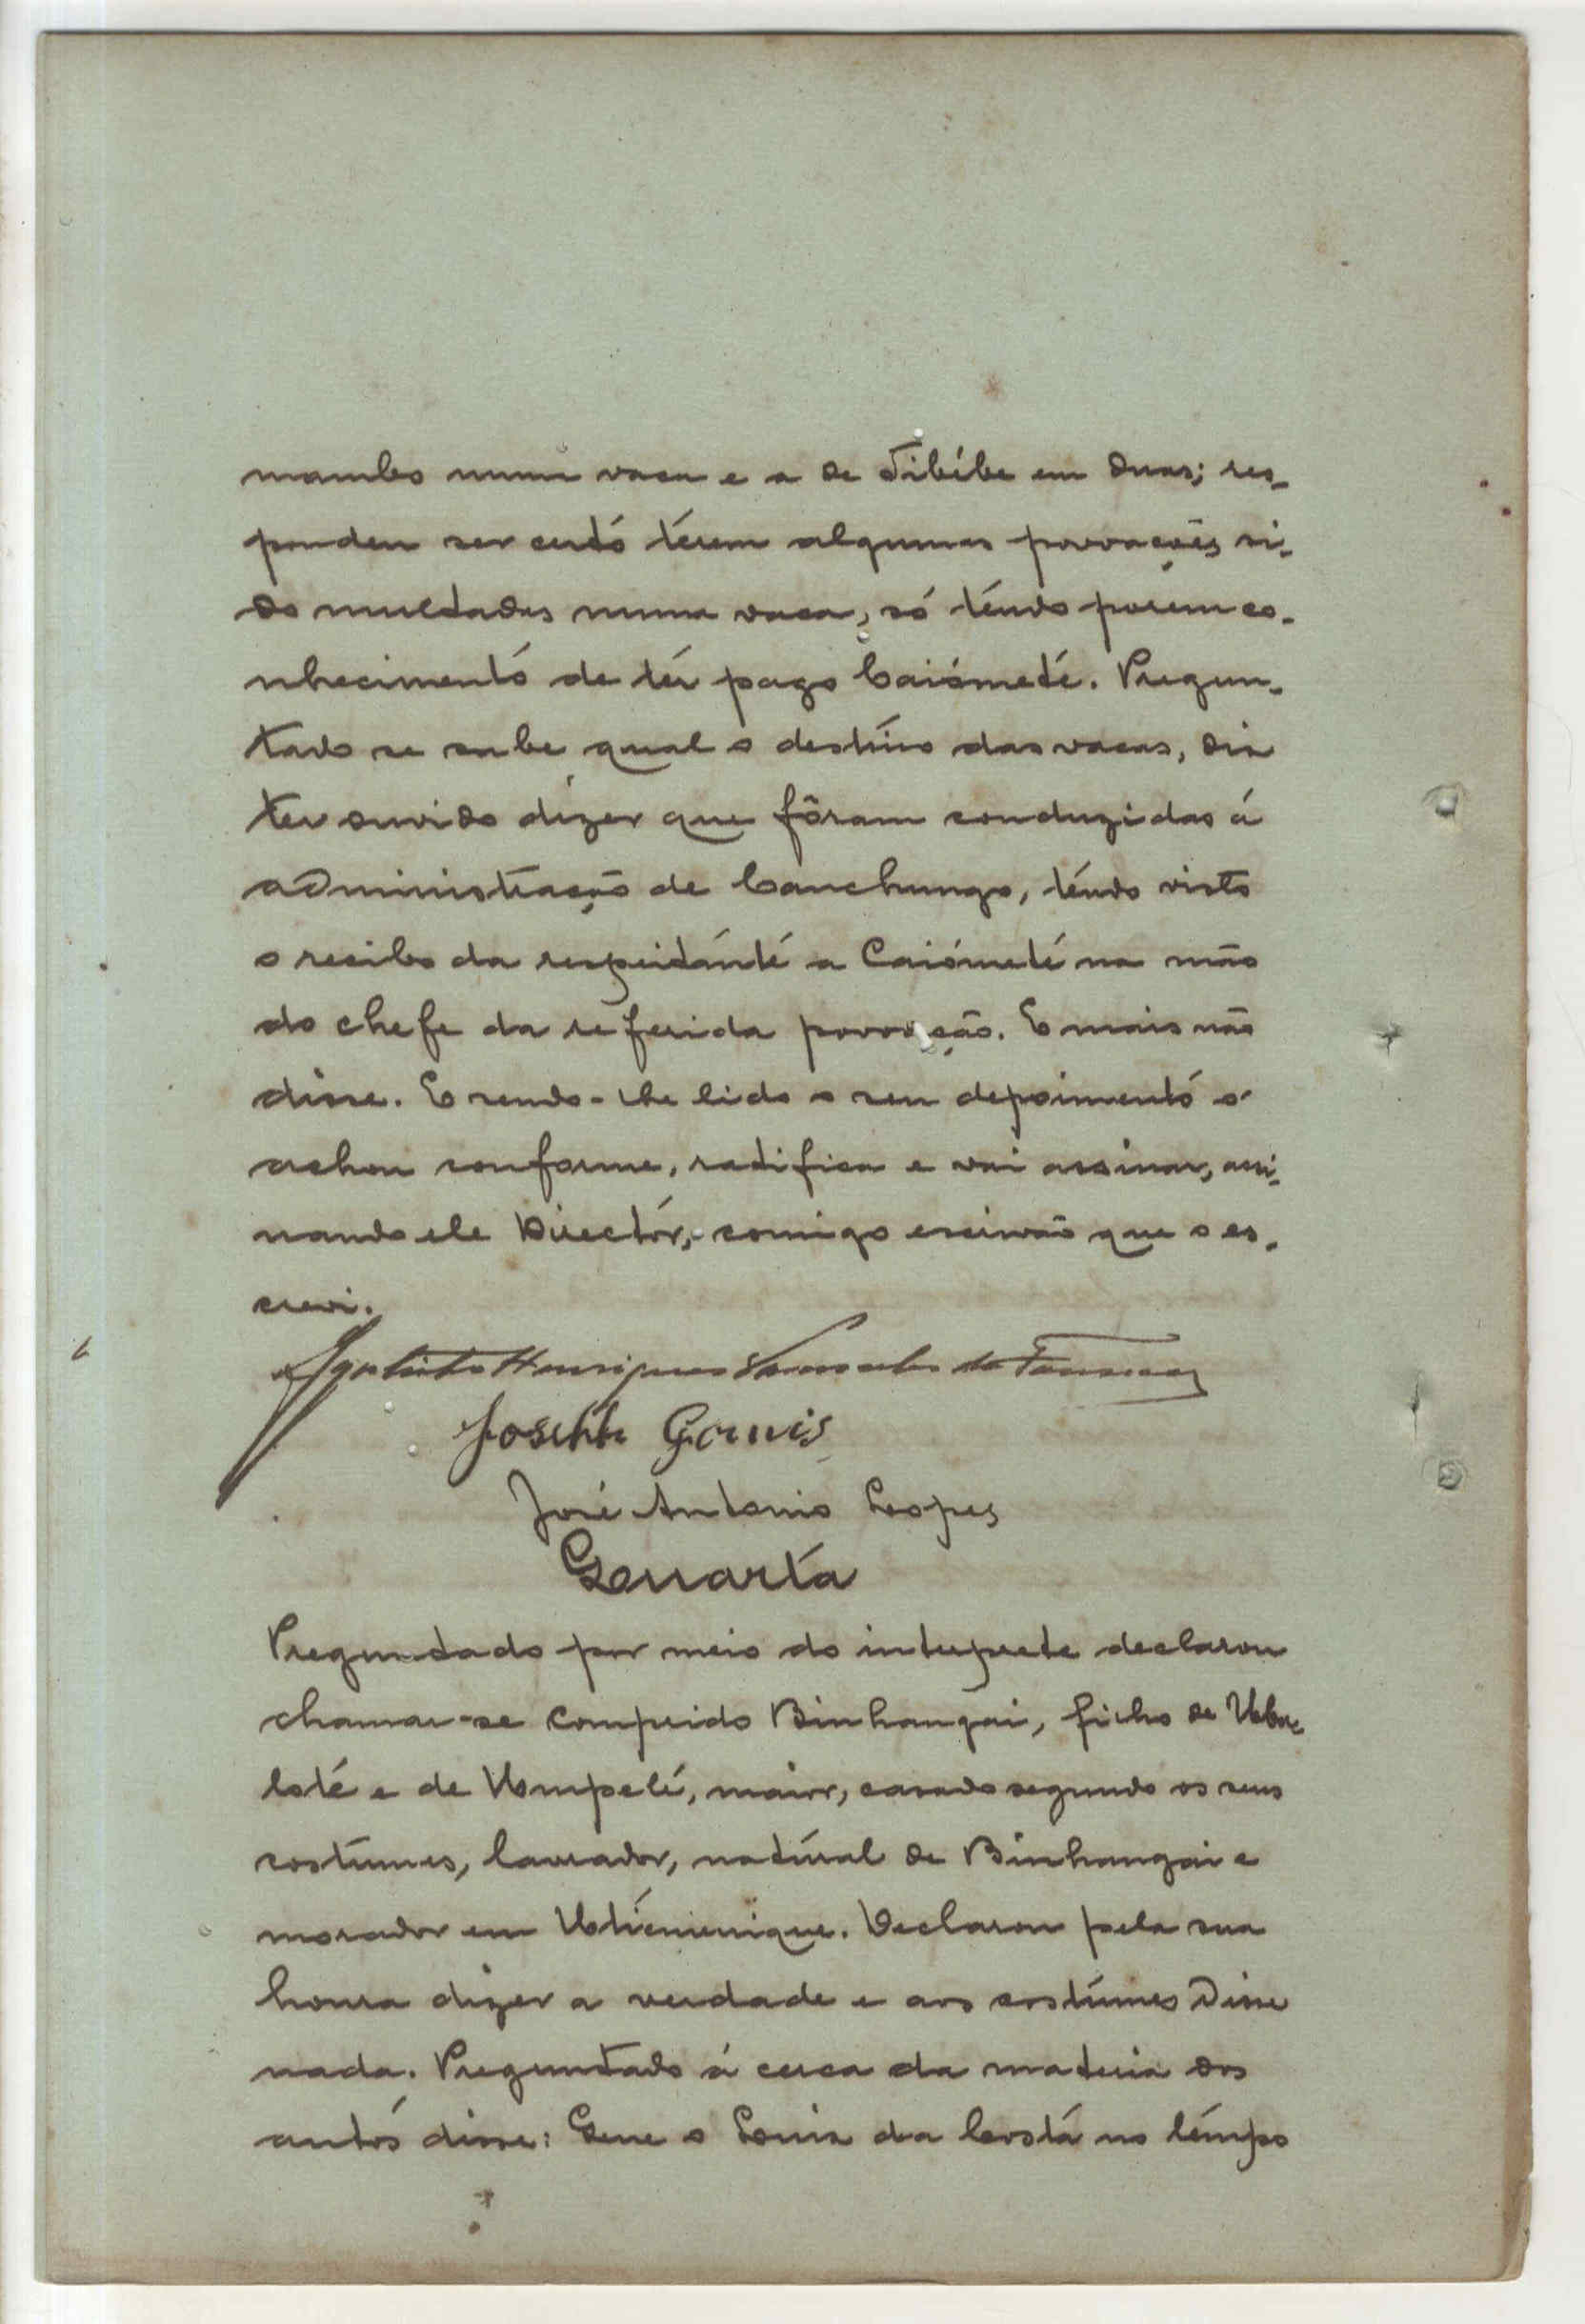 mambo numa vaca e a de Tibébe em duas; res-
pondeu ser certó térem algumas povoações si-
do multadas numa vaca, só téndo porem co-
nhecimentó de tér pago Caiómeté. Pregun-
tado se sabe qual o destino das vacas, diz
ter ouvido dizer que fôram conduzidas á
administração de Canchungo, téndo visto
o recibo da respeitánté a Caiómeté na mão
do chefe da referida povoação. E mais não
disse. E sendo-lhe lido o seu depoimentó o
achou conforme, ratifica e vai assinar, assi-
nando ele Diréctór, comigo escrivão que o es-
crevi.
Henriques de Fonseca
Joseph Gomis
José Antonio Lopes
Quarta
Preguntado por meio do interprete declarou
chamar-se Comprido Binhangai, filho de Uba-
loté e de Umpelé, maior, casado segundo os seus
costúmes, lavrador, natúral de Binhangai e
morador em Utiémenique. Declarou pela sua
honra dizer a verdade e aos costúmes disse
nada. Preguntado á cerca da materia dos
autós disse: Que o Louis da Costá no témpo